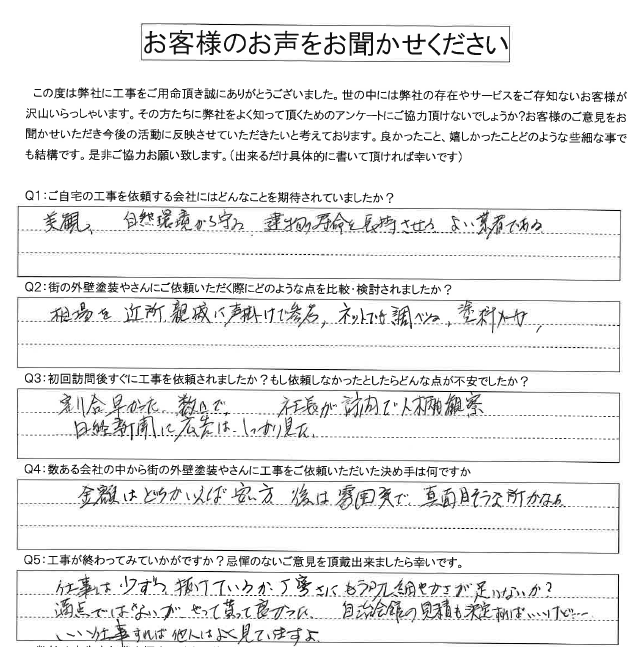 お客様のお声をお聞かせください
この度は弊社に工事をご用命頂き誠にありがとうございました。世の中には弊社の存在やサービスをご存知ないお客様が
沢山いらっしゃいます。その方たちに弊社をよく知って頂くためのアンケートにご協力頂けないでしょうか?お客様のご意見をお
聞かせいただき今後の活動に反映させていただきたいと考えております。良かったこと、嬉しかったことどのような些細な事で
も結構です。是非ご協力お願い致します。(出来るだけ具体的に書いて頂ければ幸いです)
Q1:ご自宅の工事を依頼する会社にはどんなことを期待されていましたか?
美観、 自然環境から守る 建物の寿命を長持させる よい業者である
Q2:街の外壁塗装やさんにご依頼いただく際にどのような点を比較・検討されましたか?
相場を 近所、親戚に声掛けで参考、ネットでも調べる、塗料メーカー、
Q3:初回訪問後すぐに工事を依頼されましたか?もし依頼しなかったとしたらどんな点が不安でしたか?
割合早かった 数日で。 社長が訪問で人柄観察
日経新聞に広告は、しっかり見た。
Q4:数ある会社の中から街の外壁塗装やさんに工事をご依頼いただいた決め手は何ですか
金額はどちらかいえば安い方 後は雰囲気で 真面目そうな所かなぁ
Q5:工事が終わってみていかがですか?忌憚のないご意見を頂戴出来ましたら幸いです。
仕事は少しずつ抜けているか 丁寧さにもう少し細やかさが足りないか?
満点ではないが やって貰って良かった 自治会館の見積も決定すればいいけど…
いい仕事すれば他人はよく見ていますよ